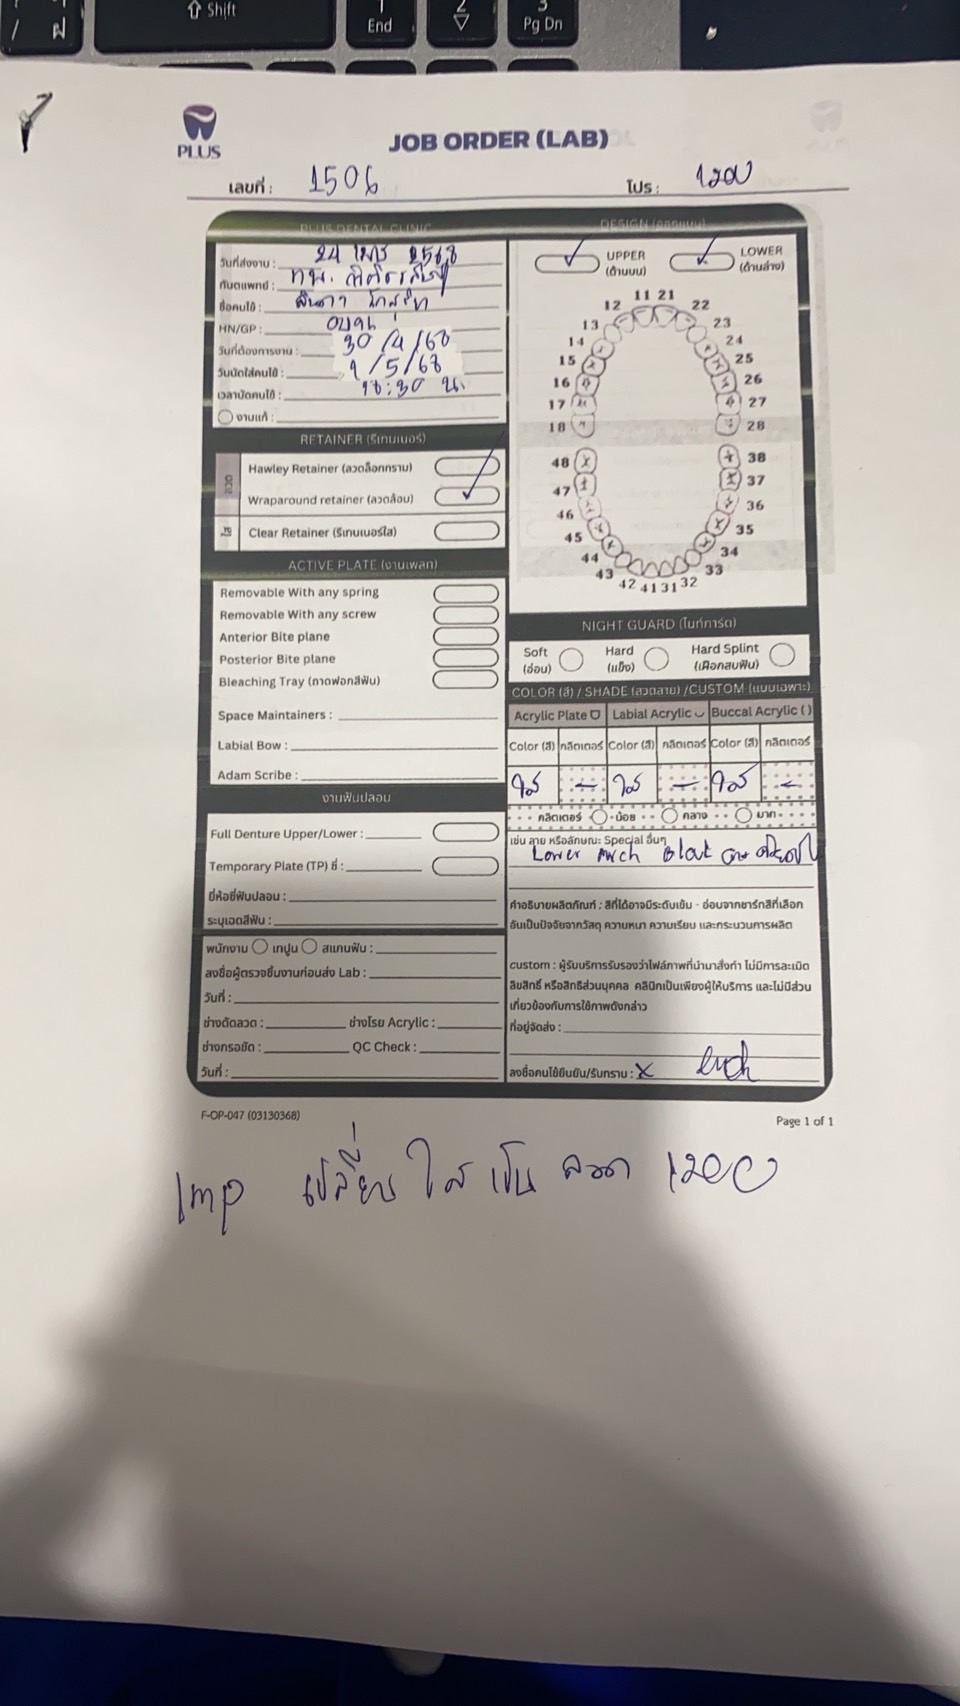 Shift
End
Pg Dn
/ ฝ
PLUS
JOB ORDER (LAB)
เลขที่ : 1506
โปร : 1200
PLUS DENTAL CLINIC
วันที่ส่งงาน : 24 เมษ 2568
ทันตแพทย์ : ทพ.
ชื่อคนไข้ :
HN/GP :
วันที่ต้องการงาน : 30/4/68
วันนัดใส่คนไข้ : 1/5/68
เวลานัดคนไข้ : 18:30 น.
งานแก้ :
RETAINER (รีเทนเนอร์)
ลวด
Hawley Retainer (ลวดล็อกกราม)
Wraparound retainer (ลวดล้อม)
ใส
Clear Retainer (รีเทนเนอร์ใส)
ACTIVE PLATE (งานเพลท)
Removable With any spring
Removable With any screw
Anterior Bite plane
Posterior Bite plane
Bleaching Tray (ถาดฟอกสีฟัน)
Space Maintainers :
Labial Bow :
Adam Scribe :
งานฟันปลอม
Full Denture Upper/Lower :
Temporary Plate (TP) ซี่ :
ยี่ห้อซี่ฟันปลอม :
ระบุเฉดสีฟัน :
พนักงาน เทปูน สแกนฟัน :
ลงชื่อผู้ตรวจชิ้นงานก่อนส่ง Lab :
วันที่ :
ช่างดัดลวด : ช่างโรย Acrylic :
ช่างกรอขัด : QC Check :
วันที่ :
DESIGN (ออกแบบ)
UPPER (ด้านบน)
LOWER (ด้านล่าง)
11 21
12 22
13 23
14 24
15 25
16 26
17 27
18 28
48 38
47 37
46 36
45 35
44 34
43 33
42 41 31 32
NIGHT GUARD (ไนท์การ์ด)
Soft (อ่อน) Hard (แข็ง) Hard Splint (เฝือกสบฟัน)
COLOR (สี) / SHADE (ลวดลาย) /CUSTOM (แบบเฉพาะ)
Acrylic Plate Labial Acrylic Buccal Acrylic ( )
Color (สี) กลิตเตอร์ Color (สี) กลิตเตอร์ Color (สี) กลิตเตอร์
ใส - ใส - ใส -
กลิตเตอร์ น้อย กลาง มาก
เช่น ลาย หรือลักษณะ Special อื่นๆ
Lower Arch
คำอธิบายผลิตภัณฑ์ : สีที่ได้อาจมีระดับเข้ม - อ่อนจากชาร์ทสีที่เลือก
อันเป็นปัจจัยจากวัสดุ ความหนา ความเรียบ และกระบวนการผลิต
custom : ผู้รับบริการรับรองว่าไฟล์ภาพที่นำมาสั่งทำ ไม่มีการละเมิด
ลิขสิทธิ์ หรือสิทธิส่วนบุคคล คลินิกเป็นเพียงผู้ให้บริการ และไม่มีส่วน
เกี่ยวข้องกับการใช้ภาพดังกล่าว
ที่อยู่จัดส่ง :
ลงชื่อคนไข้ยืนยัน/รับทราบ : x
F-OP-047 (03130368)
Page 1 of 1
Imp เปลี่ยน ใส เป็น ลวด 1200